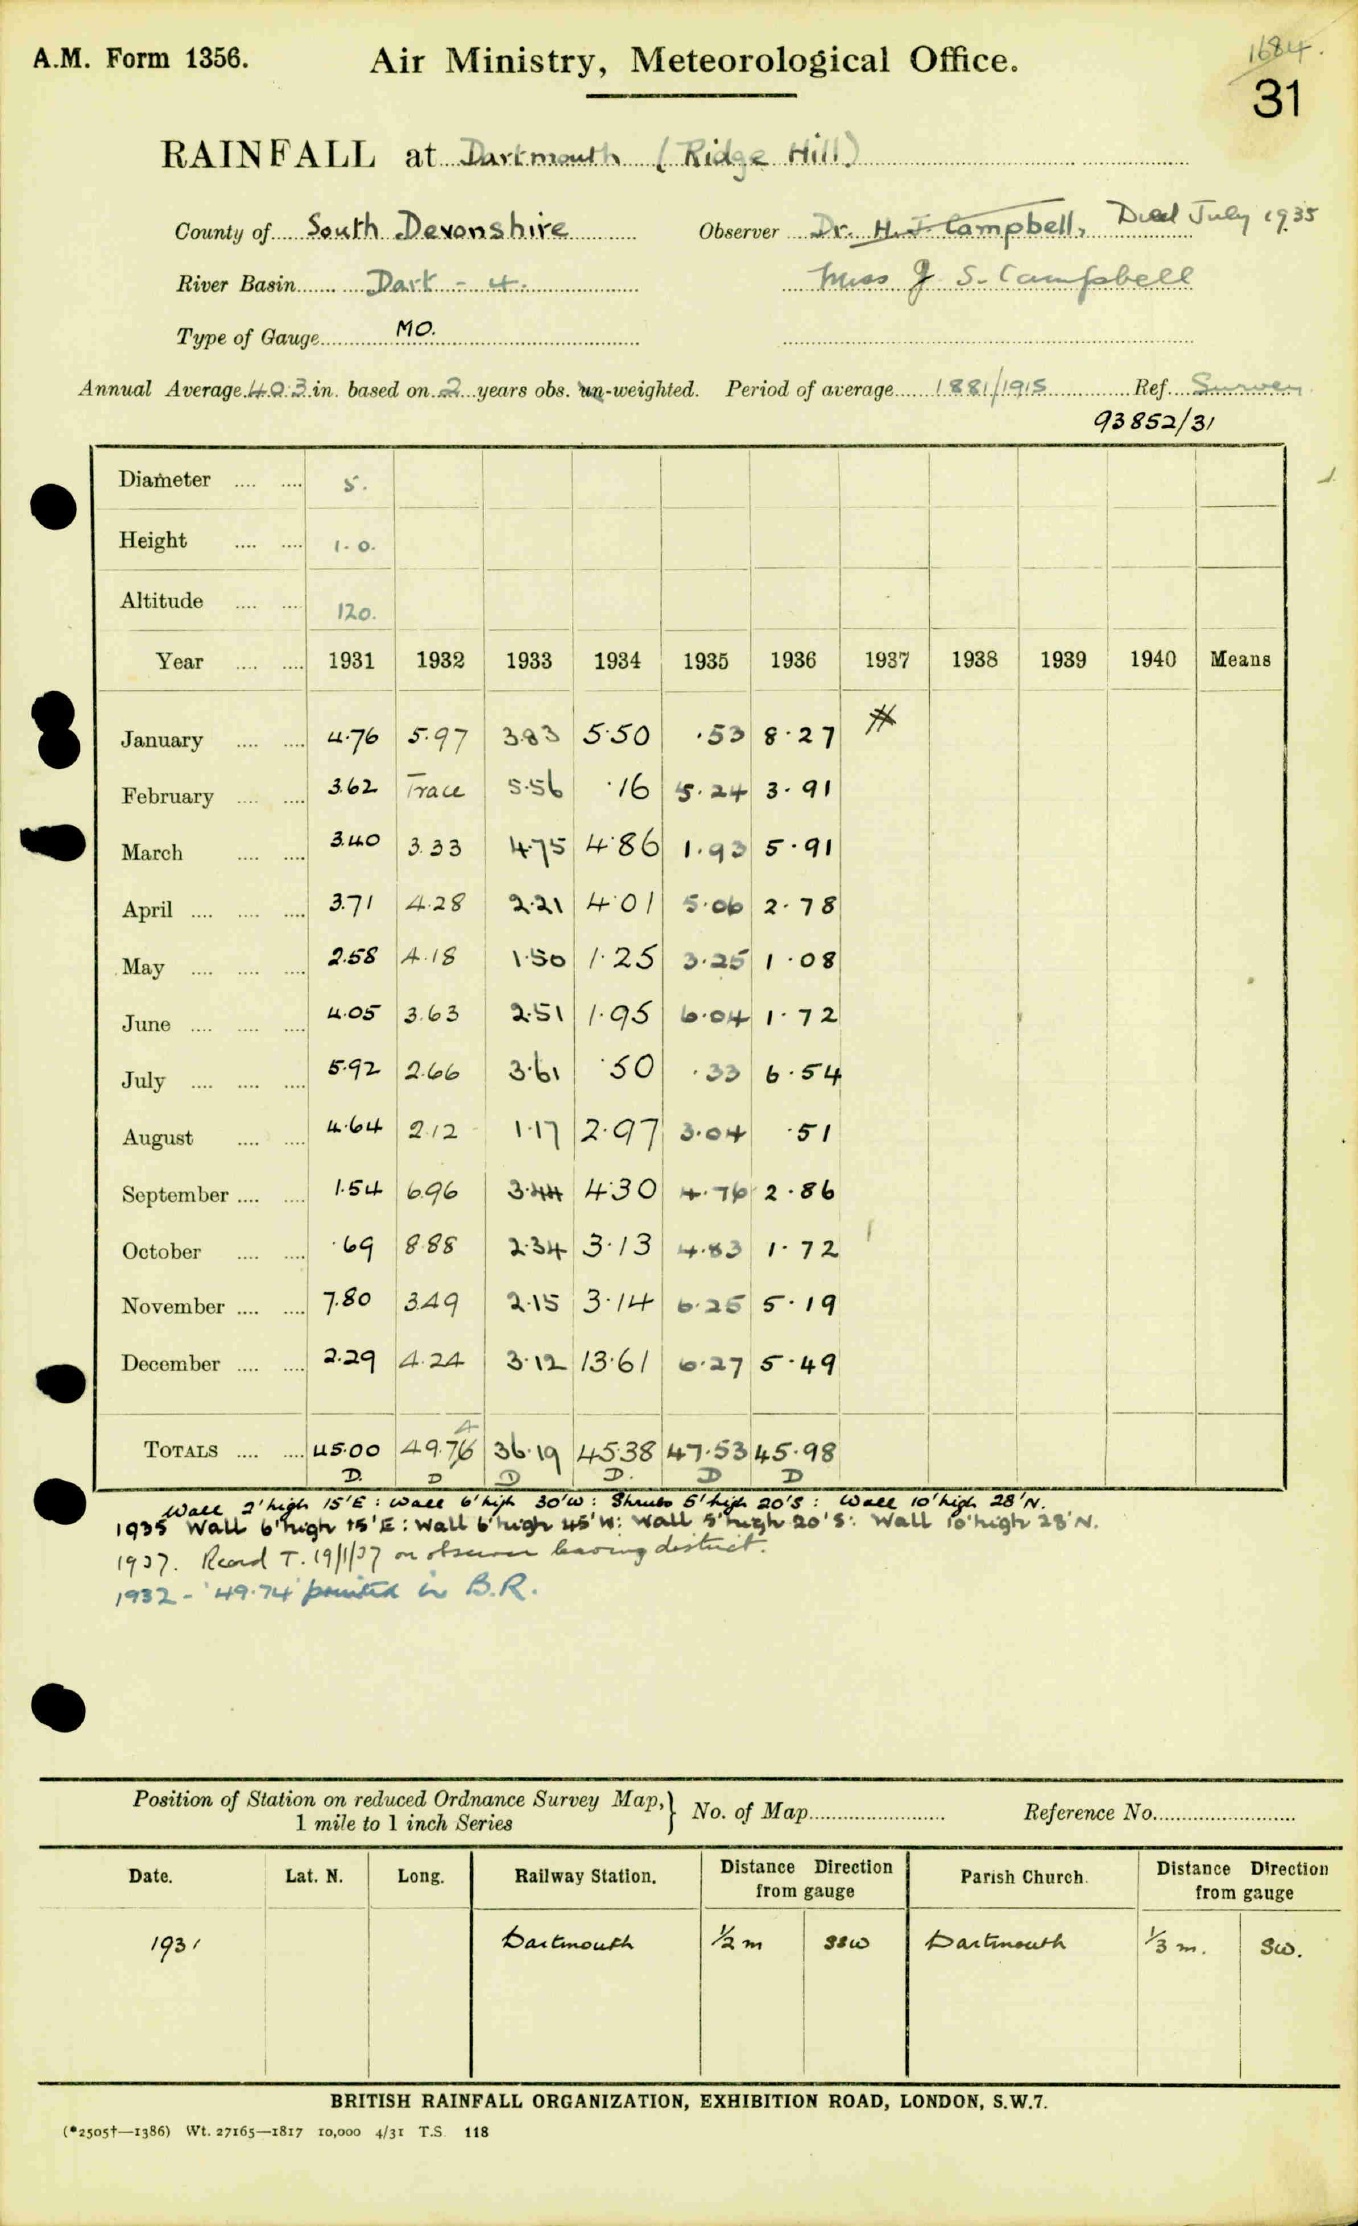 1684.
A.M. Form 1356. Air Ministry, Meteorological Office.
31
RAINFALL at Dartmouth (Ridge Hill)
County of South Devonshire Observer Dr. H. J. Campbell, Died July 1935
River Basin Dart - 4. Miss J S. Campbell
Type of Gauge MO.
Annual Average 40.3 in. based on 2 years obs. un-weighted. Period of average 1881/1915 Ref. Survey
93852/31
Diameter .... .... 5.
Height .... .... 1.0.
Altitude .... .... 120.
Year .... .... 1931 1932 1933 1934 1935 1936 1937 1938 1939 1940 Means
January .... .... 4.76 5.97 3.83 5.50 .53 8.27
February .... .... 3.62 Trace 5.56 .16 5.24 3.91
March .... .... 3.40 3.33 4.75 4.86 1.93 5.91
April .... .... .... 3.71 4.28 2.21 4.01 5.06 2.78
May .... .... .... 2.58 4.18 1.50 1.25 3.25 1.08
June .... .... .... 4.05 3.63 2.51 1.95 6.04 1.72
July .... .... .... 5.92 2.66 3.61 .50 .33 6.54
August .... .... 4.64 2.12 1.17 2.97 3.04 .51
September .... .... 1.54 6.96 3.44 4.30 4.76 2.86
October .... .... .69 8.88 2.34 3.13 4.83 1.72
November .... .... 7.80 3.49 2.15 3.14 6.25 5.19
December .... .... 2.29 4.24 3.12 13.61 6.27 5.49
4
TOTALS .... .... 45.00 49.76 36.19 45.38 47.53 45.98
D. D D D. D D
Wall 2' high 15'E : Wall 6' high 30'W : Shrubs 5' high 20'S : Wall 10' high 28'N.
1935 Wall 6' high 15'E : Wall 6' high 45'W : Wall 5' high 20'S : Wall 10' high 28'N.
1937. Record T. 19/1/37 on observer leaving district.
1932 - '49.74' printed in B.R.
Position of Station on reduced Ordnance Survey Map, } No. of Map Reference No.
1 mile to 1 inch Series
Date. Lat. N. Long. Railway Station. Distance Direction from gauge Parish Church. Distance Direction from gauge
1931 Dartmouth ½ m SSW Dartmouth ⅓ m. SW.
BRITISH RAINFALL ORGANIZATION, EXHIBITION ROAD, LONDON, S.W.7.
(*2505†—1386) Wt. 27165—1817 10,000 4/31 T.S. 118